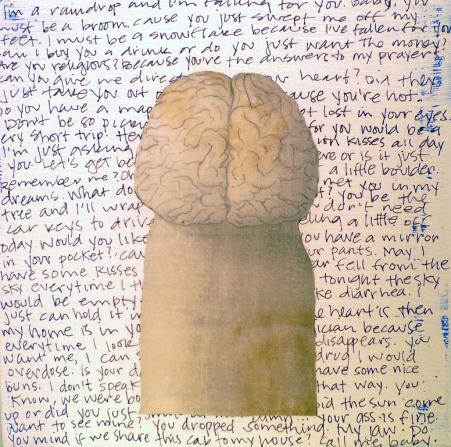 I'm a raindrop and I'm falling for you. baby, you
must be a broom cause you just swept me off my
feet. I must be a snowflake because I've fallen for you
can I buy you a drink or do you just want the money?
Are you religious? because you're the answer to my prayers
can you give me direc heart? Did they
just take you out o cause you're hot.
Do you have a map t lost in your eyes.
Don't be so picky for you would be a
short trip. Hey on kisses all day
I'm just asking ere or is it just
you. Let's get be a little boulder.
remember me? Oh met you in my
dreams. What do ? You be the
tree and I'll wrap don't need
car keys to driv ling a little off
today would you like you have a mirror
in your pocket? 'cau ur pants. May I
have some kisses ar fell from the
sky everytime I th tonight the sky
would be empty. ke diarrhea. I
just can hold it e heart is then
my home is in yo ician because
everytime I look disappears. you
want me, I can drug I would
overdose. is your d have some nice
buns. I don't speak that way. You
know, we were bo id the sun come
up or did you just your ass is fine
want to see mine? You dropped something. My jaw. Do
you mind if we share this cab to my house? Call me, baby.